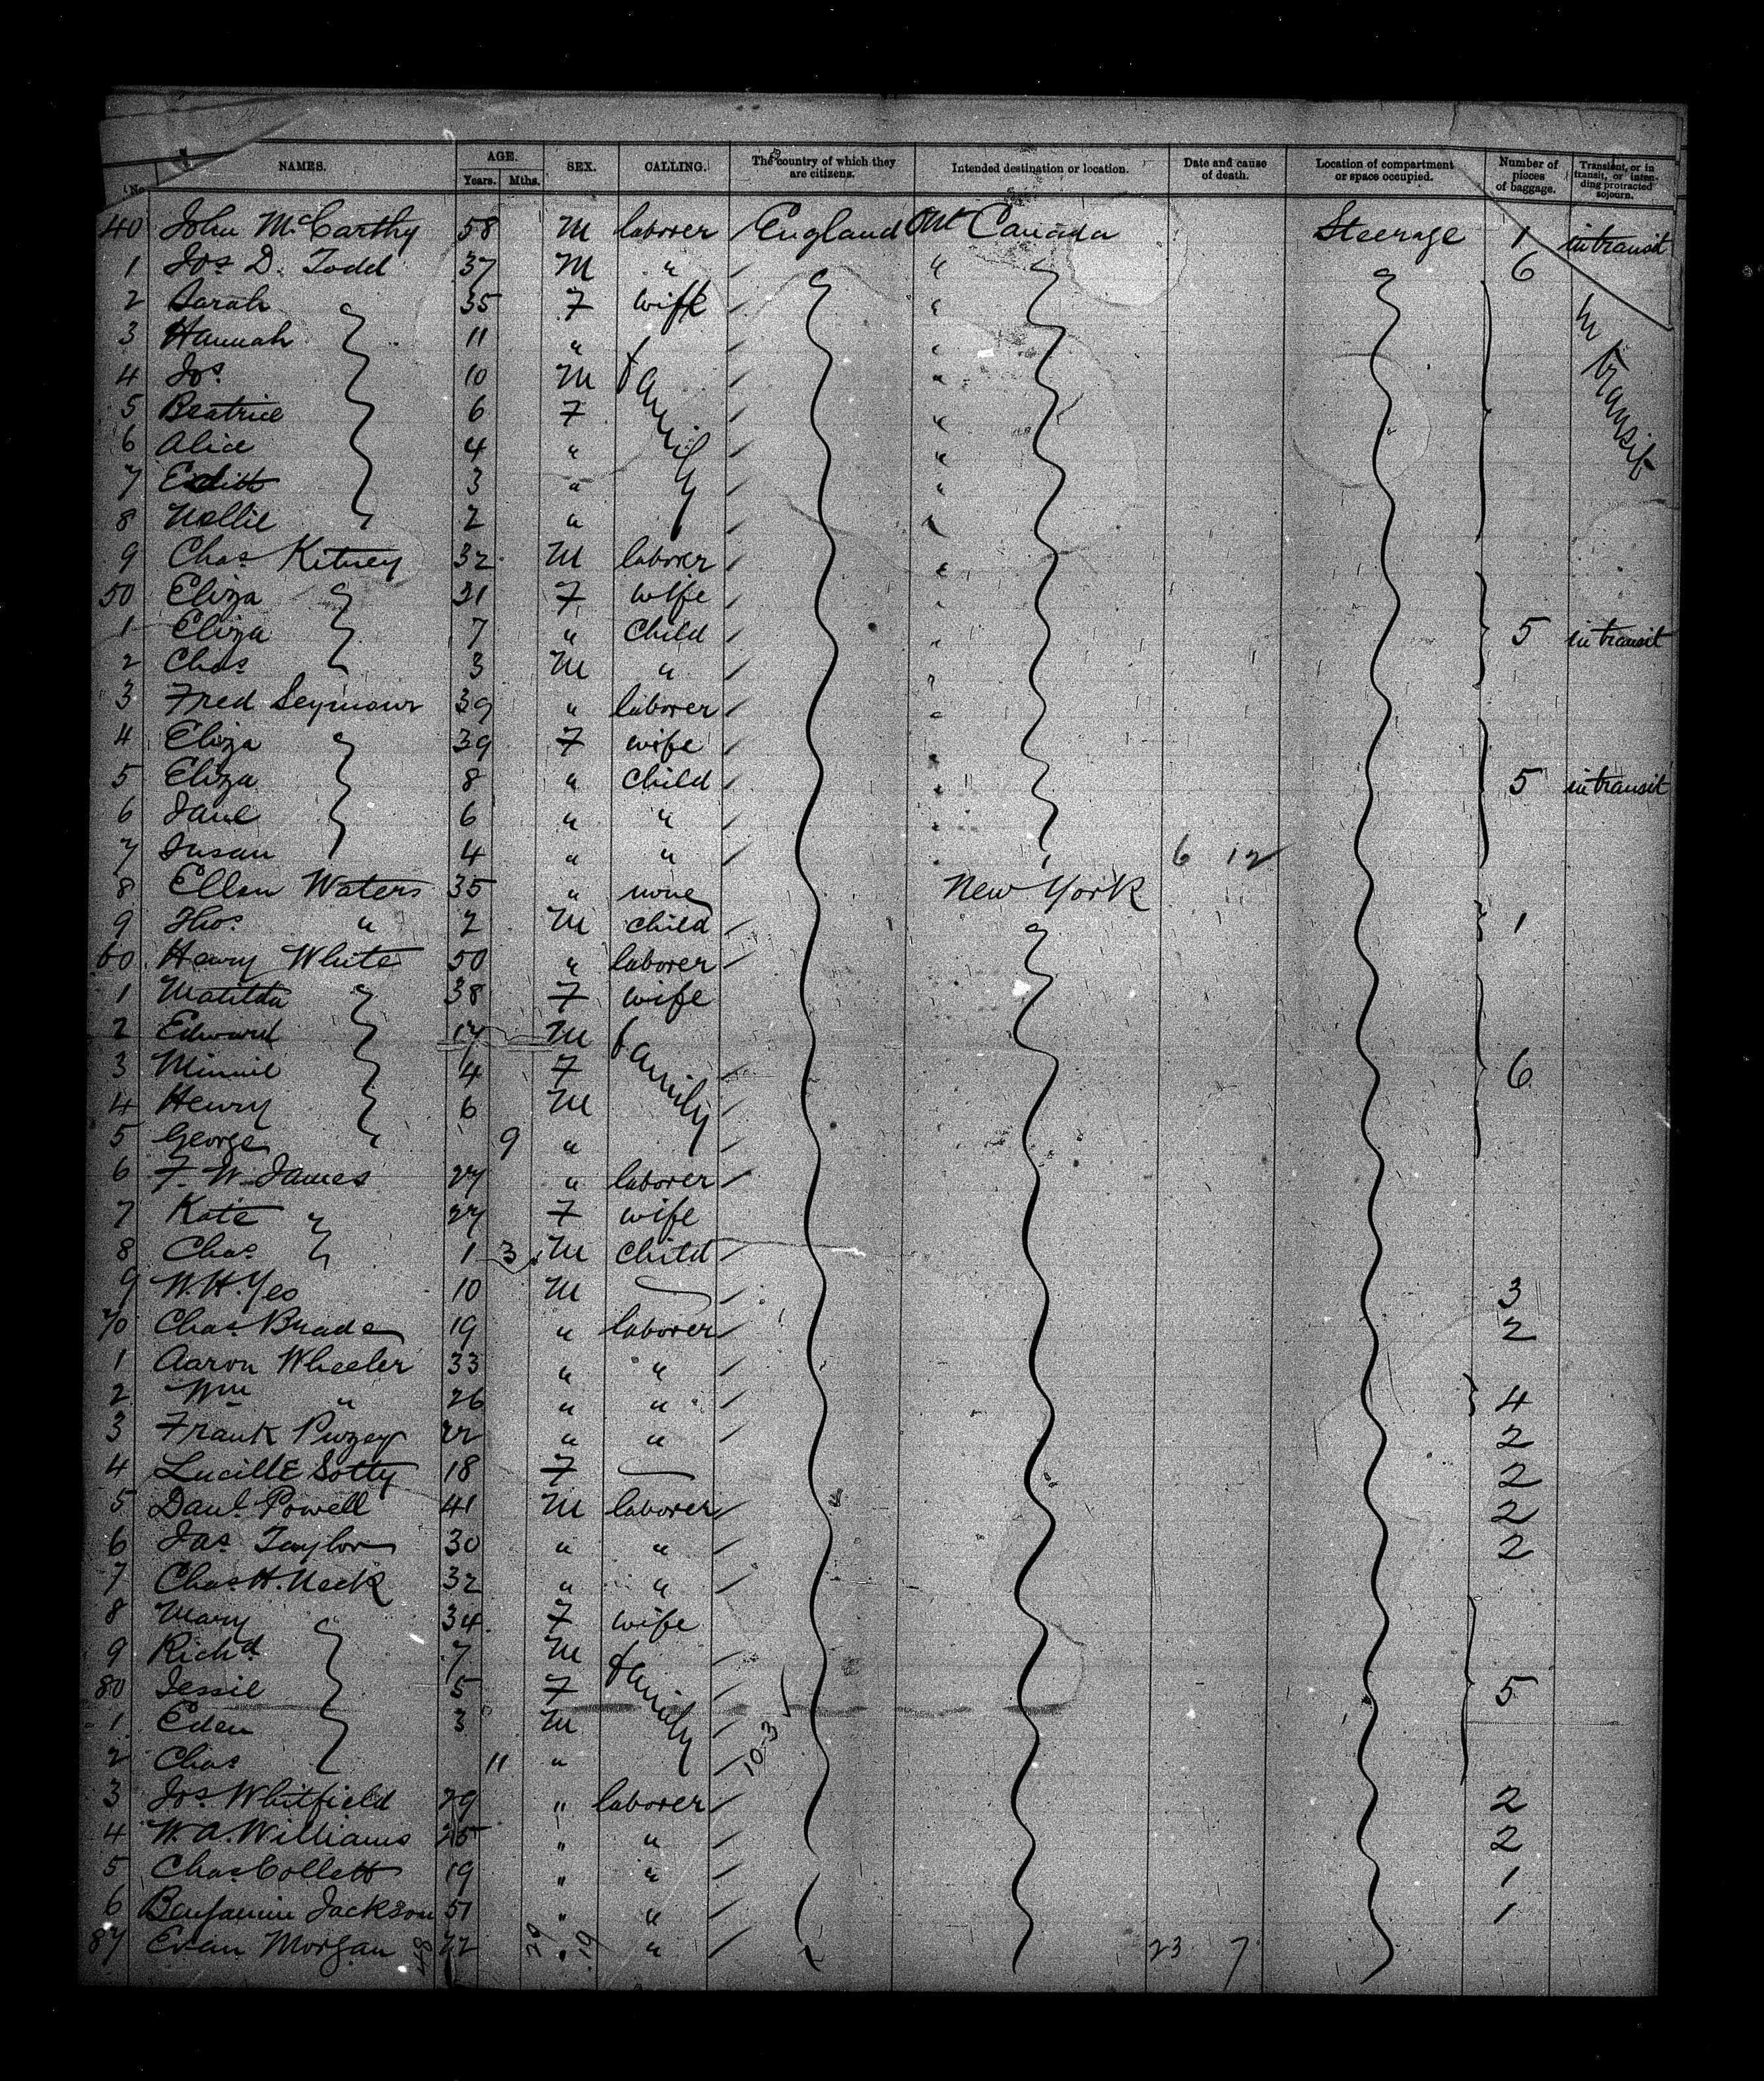 No. NAMES. AGE. Years. Mths. SEX. CALLING. The country of which they are citizens. Intended destination or location. Date and cause of death. Location of compartment or space occupied. Number of pieces of baggage. Transient, or in transit, or intending protracted sojourn.
40 John McCarthy 58 M laborer England Ont Canada Steerage 1 in transit
1 Jos D. Todd 37 M " " 6
2 Sarah 35 F wife " in transit
3 Hannah 11 " family "
4 Jos. 10 M "
5 Beatrice 6 F "
6 Alice 4 " "
7 Edith 3 " "
8 Nellie 2 "
9 Chas Kitney 32 M laborer "
50 Eliza 31 F wife "
1 Eliza 7 " child " 5 in transit
2 Chas 3 M "
3 Fred Seymour 39 " laborer "
4 Eliza 39 F wife "
5 Eliza 8 " child " 5 in transit
6 Jane 6 " " "
7 Susan 4 " " " 6 12
8 Ellen Waters 35 " none New York
9 Thos. " 2 M child 1
60 Henry White 50 " laborer
1 Matilda 38 F wife
2 Edward 17 M family
3 Minnie 4 F 6
4 Henry 6 M
5 George 9 "
6 F. W. James 27 " laborer
7 Kate 27 F wife
8 Chas. 1 3 M child
9 W. H. Yeo 10 M 3
70 Chas. 19 " laborer 2
1 Aaron Wheeler 33 " "
2 Wm " 26 " " 4
3 Frank 22 " " 2
4 Lucille Sotty 18 F 2
5 Danl. Powell 41 M laborer 2
6 Jas. Taylor 30 " " 2
7 Chas H. Neck 32 " "
8 Mary 34 F wife
9 Richd 7 M family
80 Jessie 5 F 5
1 Eden 3 M
2 Chas 11 " 10-3
3 Jos. Whitfield 29 " laborer 2
4 W. A. Williams 25 " " 2
5 Chas Collett 19 " " 1
6 Benjamin Jackson 51 " " 1
87 Evan Morgan 48 22 29 19 " 23 7